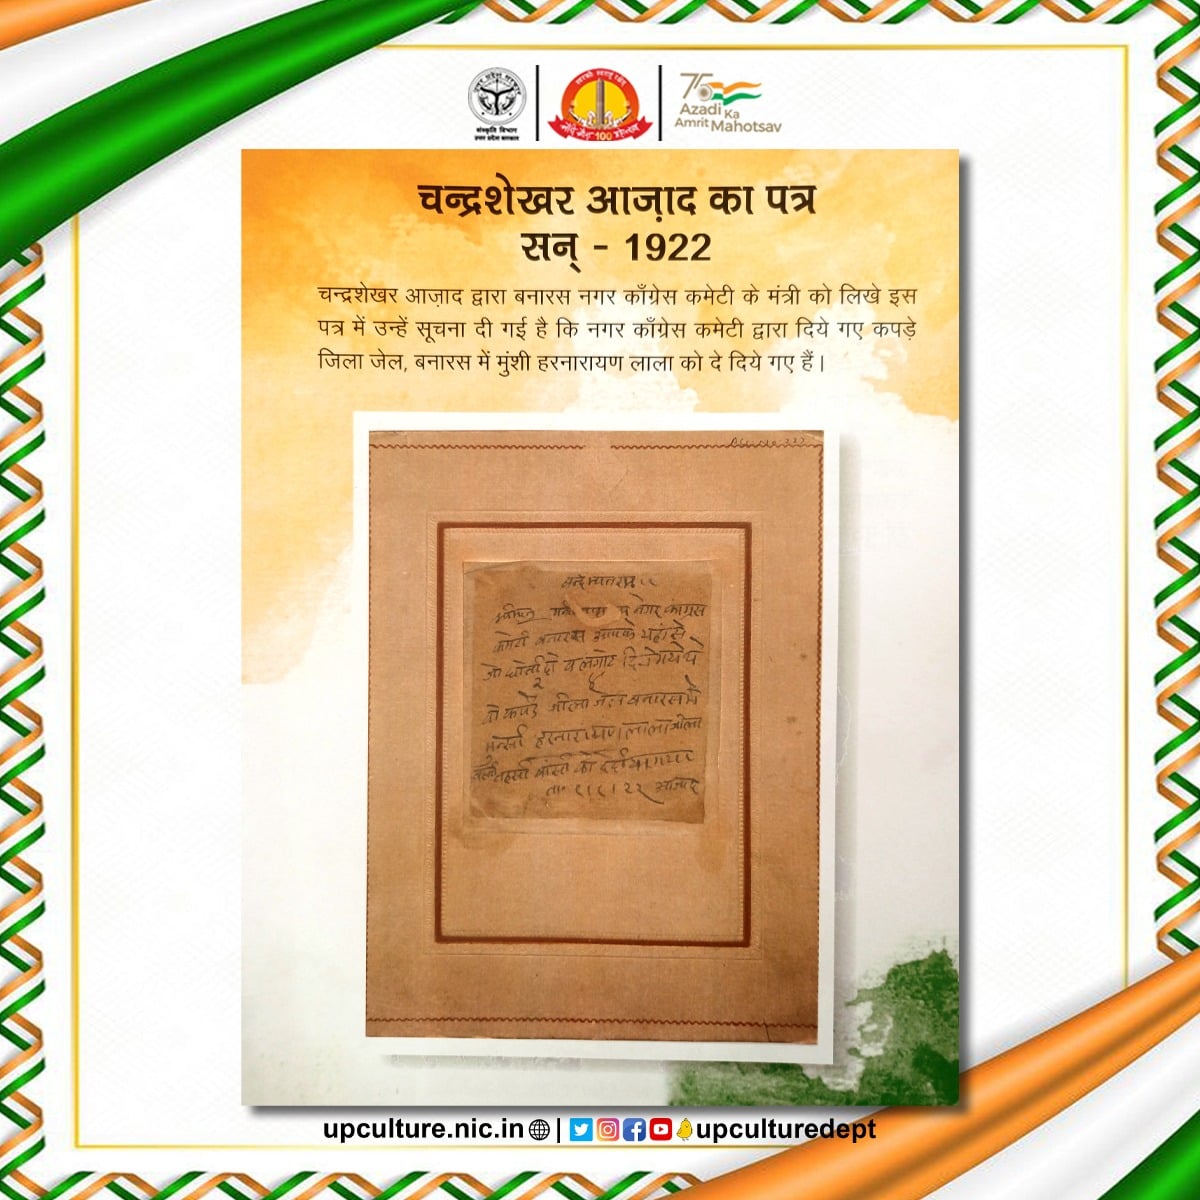 उत्तर प्रदेश सरकार
संस्कृति विभाग
उत्तर प्रदेश सरकार
100
75
Azadi Ka
Amrit Mahotsav
चन्द्रशेखर आज़ाद का पत्र
सन् - 1922
चन्द्रशेखर आज़ाद द्वारा बनारस नगर काँग्रेस कमेटी के मंत्री को लिखे इस
पत्र में उन्हें सूचना दी गई है कि नगर काँग्रेस कमेटी द्वारा दिये गए कपड़े
जिला जेल, बनारस में मुंशी हरनारायण लाला को दे दिये गए हैं।
वन्देमातरम
नगर कांग्रेस
कमेटी बनारस आपके यहां से
जो धोती दो व लंगोट दिये गये थे
२
वो कपड़े जीला जेल बनारस मे
मुन्सी हरनारायण लाला जीला
को दे दीया गया
ता० आजाद
upculture.nic.in | upculturedept